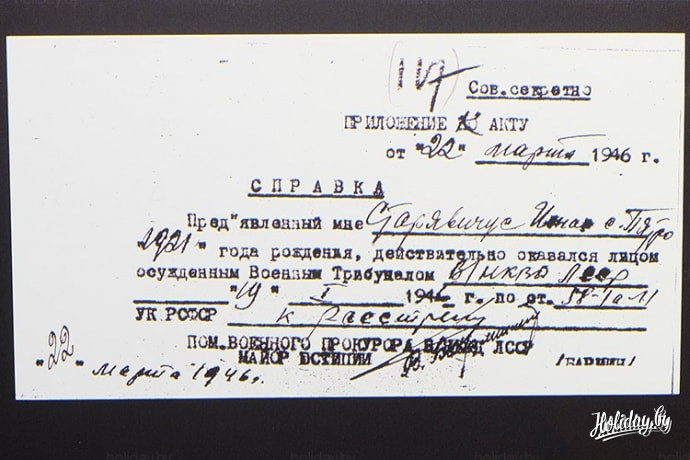 117
Сов.секретно
ПРИЛОЖЕНИЕ К АКТУ
от "22" марта 1946 г.
СПРАВКА
Пред"явленный мне Старявичус Игнас с. Пятро
"1921" года рождения, действительно оказался лицом
осужденным Военным Трибуналом В/МВД ЛССР
"19" I 1946 г. по ст. 58-1а-11
УК РСФСР к расстрелу
ПОМ.ВОЕННОГО ПРОКУРОРА ЛССР
МАЙОР ЮСТИЦИИ
"22" марта 1946г.
Holiday.by